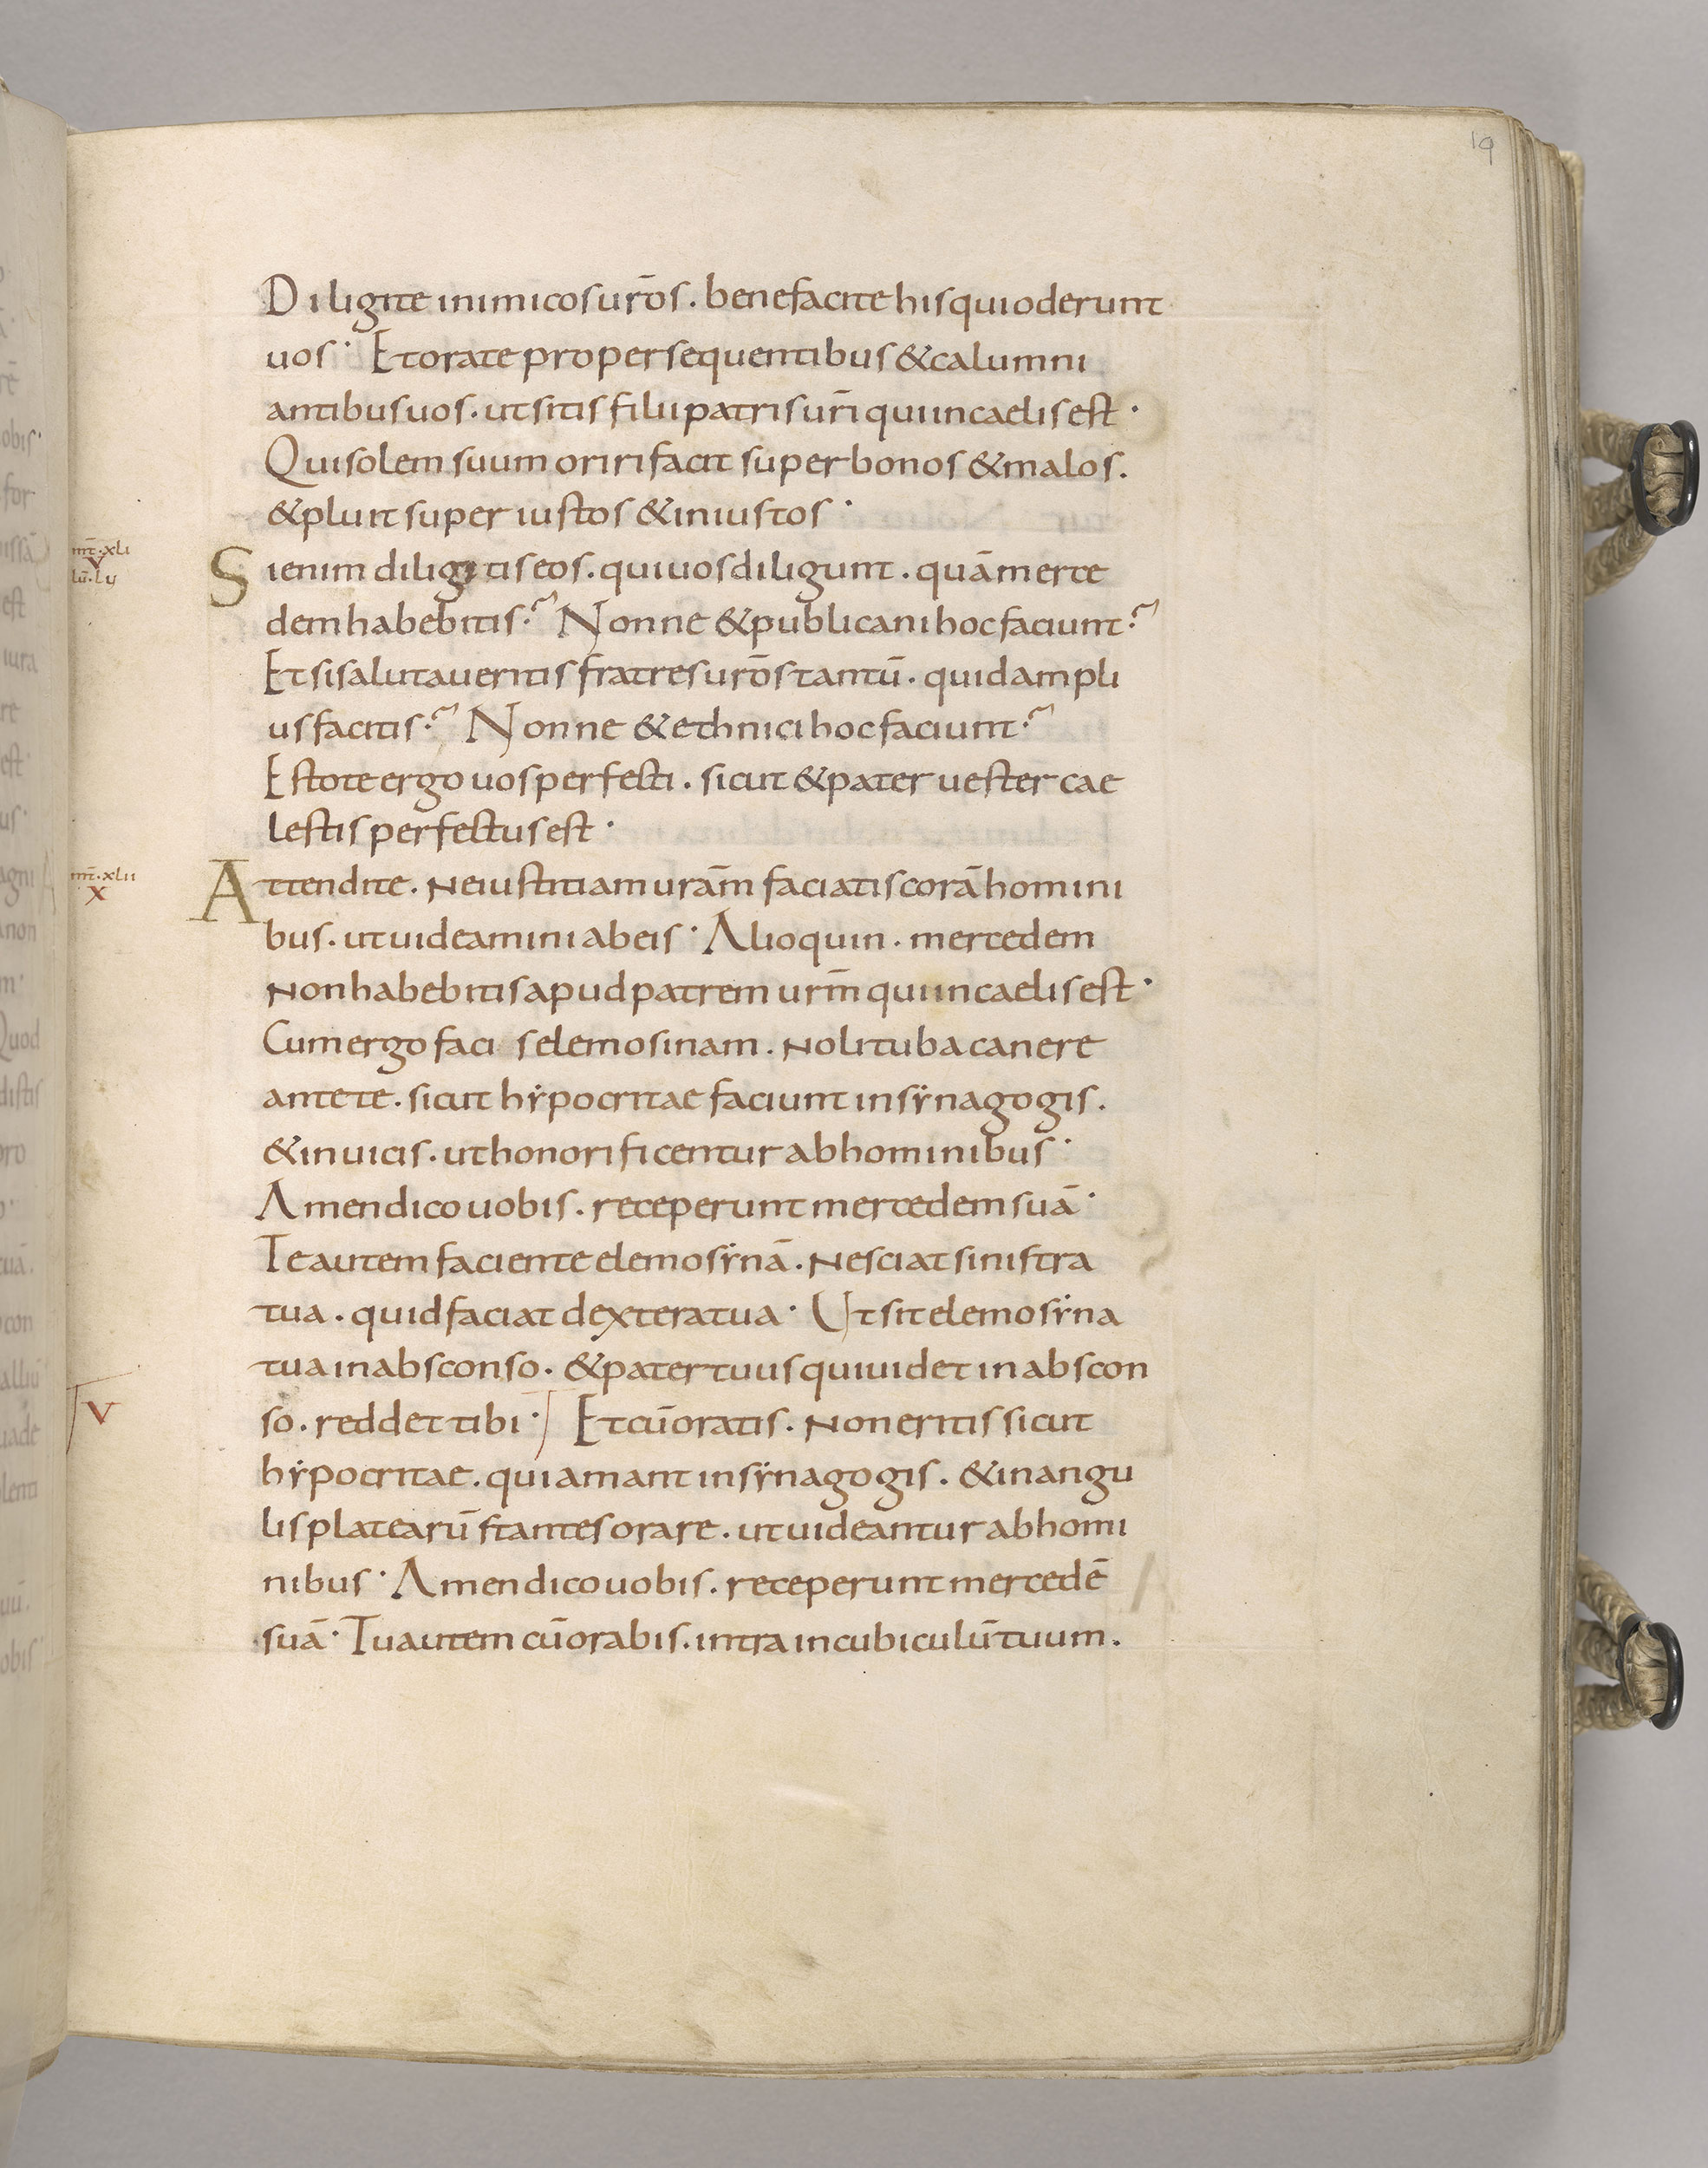 19
Diligite inimicos ur̄os. benefacite his qui oderunt
uos· Et orate pro persequentibus & calumni
antibus uos. ut sitis filii patris ur̄i qui in caelis est·
Qui solem suum oriri facit super bonos & malos.
& pluit super iustos & iniustos·
mt̄·xli
V
lū·ly
Si enim diligitis eos. qui uos diligunt. quā merce
dem habebitis? Nonne & publicani hoc faciunt?
Et si salutaueritis fratres ur̄os tantū. quid ampli
us facitis? Nonne & ethnici hoc faciunt?
Estote ergo uos perfecti. sicut & pater uester cae
lestis perfectus est·
mt̄·xlii
X
Attendite. Ne iustitiam urām faciatis corā homini
bus. ut uideamini ab eis· Alioquin. mercedem
Non habebitis apud patrem urm̄ qui in caelis est·
Cum ergo faci s elemosinam. Noli tuba canere
ante te. sicut hẏpocritae faciunt in sẏnagogis.
& in uicis. ut honorificentur ab hominibus·
Amen dico uobis. receperunt mercedem suā·
Te autem faciente elemosẏnā. Nesciat sinistra
tua. quid faciat dextera tua· Ut sit elemosẏna
tua in absconso. & pater tuus qui uidet in abscon
V
so. reddet tibi· Et cū oratis. Non eritis sicut
hẏpocritae. qui amant in sẏnagogis. & in angu
lis platearū stantes orare. ut uideantur ab homi
nibus· Amen dico uobis. receperunt mercedē
suā· Tu autem cū orabis. intra in cubiculū tuum.